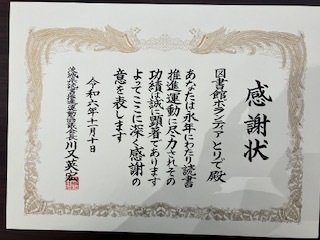 感謝状
図書館ボランティアとりで殿
あなたは永年にわたり読書
推進運動に尽力されその
功績は誠に顕著であります
よってここに深く感謝の
意を表します
令和六年十一月十日
茨城県読書推進運動協議会長 川又英宏